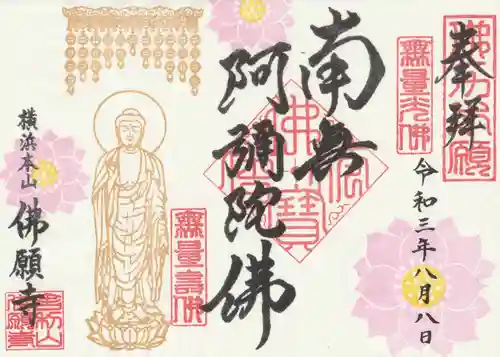 奉拝
令和三年八月八日
無量光佛
南無
阿彌陀佛
佛法僧寶
無量壽佛
横浜本山
佛願寺